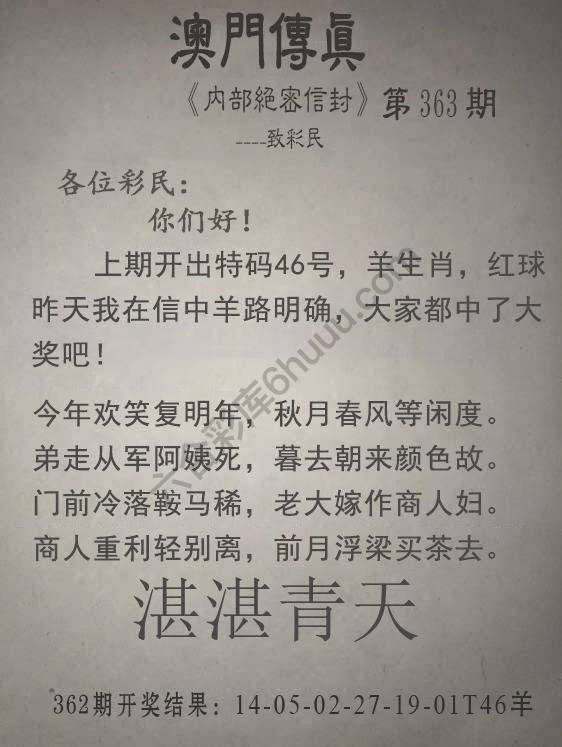 澳門傳真
《内部絕密信封》第363期
----致彩民
各位彩民：
你们好！
上期开出特码46号，羊生肖，红球
昨天我在信中羊路明确，大家都中了大
奖吧！
今年欢笑复明年，秋月春风等闲度。
弟走从军阿姨死，暮去朝来颜色故。
门前冷落鞍马稀，老大嫁作商人妇。
商人重利轻别离，前月浮梁买茶去。
湛湛青天
362期开奖结果：14-05-02-27-19-01T46羊
六合彩库6huuu.com